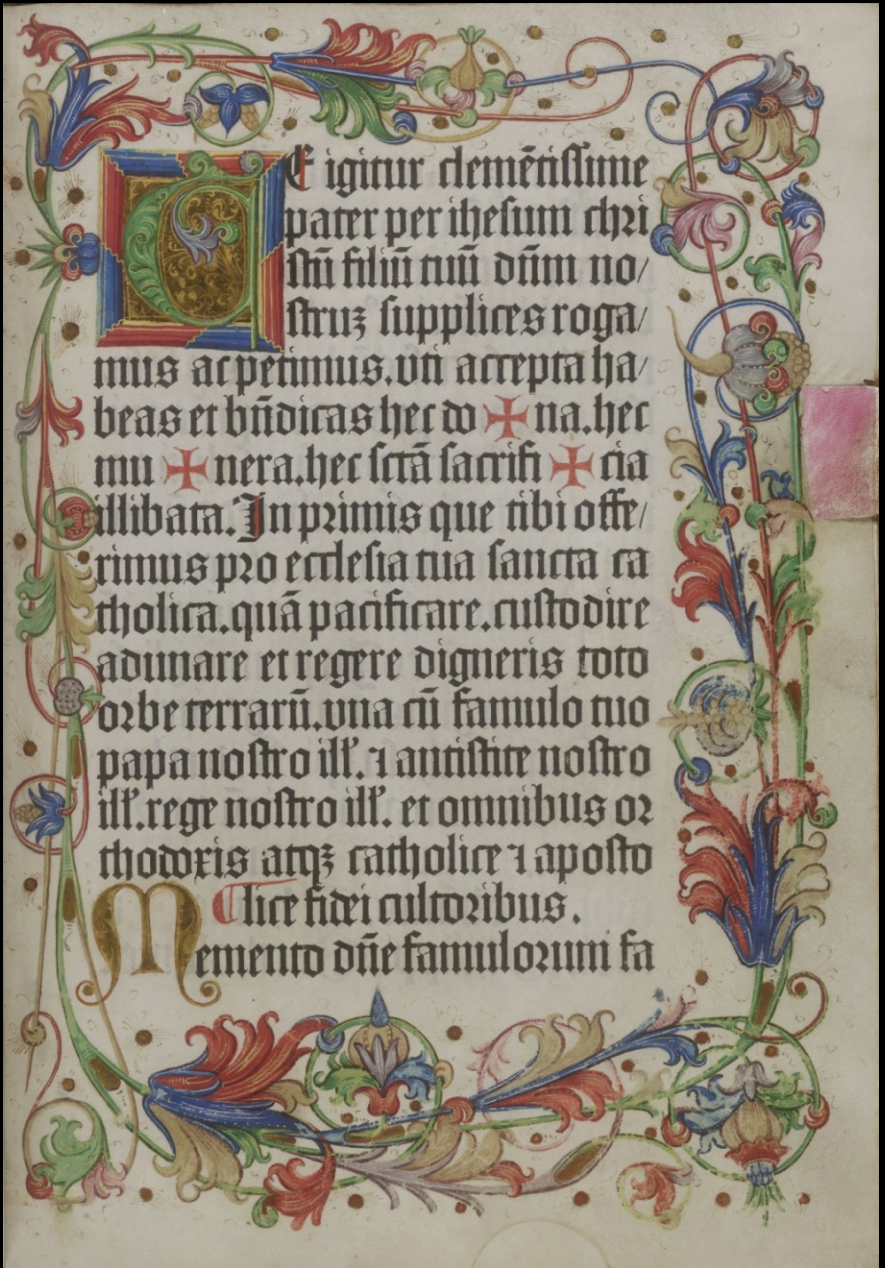 TE igitur clemētissime
pater per ihesum chri
stū filiū tuū dn̄m no/
struꝫ supplices roga/
mus ac petimus.vti accepta ha/
beas et bn̄dicas hec do ✠ na.hec
mu ✠ nera.hec sctā sacrifi ✠ cia
illibata. In primis que tibi offe/
rimus pro ecclesia tua sancta ca
tholica.quā pacificare.custodire
adunare et regere digneris toto
orbe terrarū.vna cū famulo tuo
papa nostro ill'. ⁊ antistite nostro
ill'.rege nostro ill'. et omnibus or
thodoxis atqꝫ catholice ⁊ aposto
¶lice fidei cultoribus.
Memento dn̄e famulorum fa